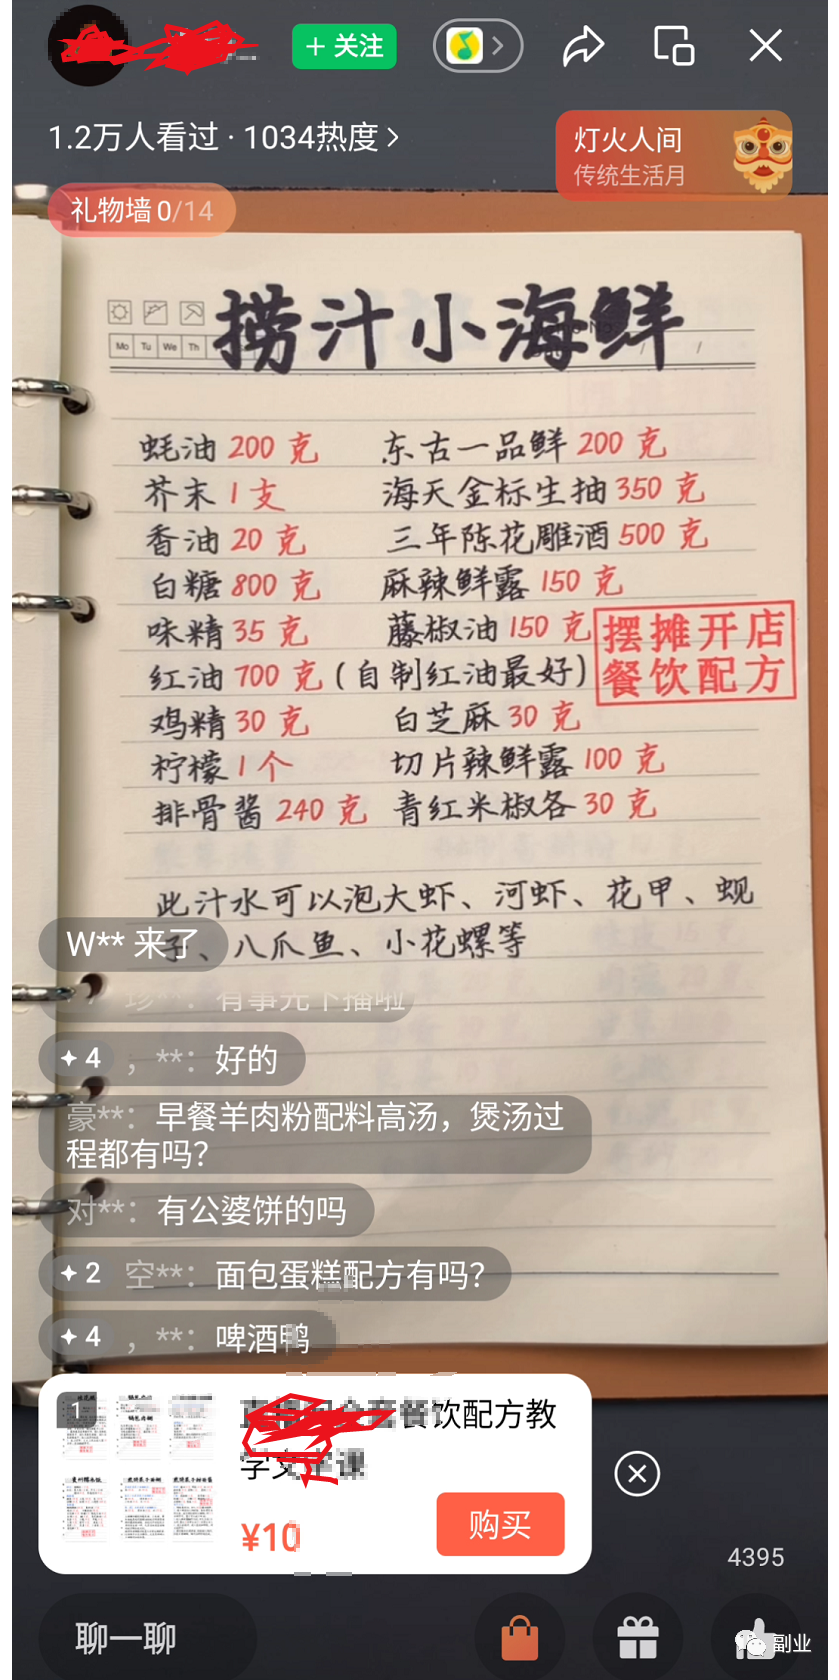 + 关注
1.2万人看过 · 1034热度 >
灯火人间
传统生活月
礼物墙 0/14
捞汁小海鲜
Mo Tu We Th
蚝油 200 克 东古一品鲜 200 克
芥末 1 支 海天金标生抽 350 克
香油 20 克 三年陈花雕酒 500 克
白糖 800 克 麻辣鲜露 150 克
味精 35 克 藤椒油 150 克
红油 700 克 (自制红油最好)
摆摊开店
餐饮配方
鸡精 30 克 白芝麻 30 克
柠檬 1 个 切片辣鲜露 100 克
排骨酱 240 克 青红米椒各 30 克
此汁水可以泡大虾、河虾、花甲、蚬
子、八爪鱼、小花螺等
W** 来了
珍**：有事先下播啦
4 ，**：好的
豪**：早餐羊肉粉配料高汤，煲汤过
程都有吗？
对**：有公婆饼的吗
2 空**：面包蛋糕配方有吗？
4 ，**：啤酒鸭
1
餐饮配方教
学
课
¥10
购买
4395
聊一聊
副业